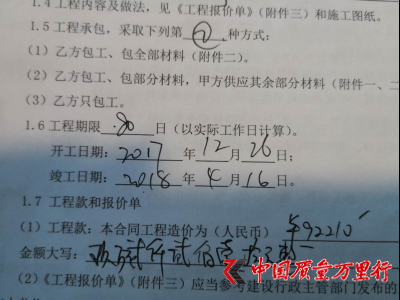 1.4 工程内容及做法，见《工程报价单》（附件三）和施工图纸。
1.5 工程承包，采取下列第 ② 种方式：
（1）乙方包工、包全部材料（附件二）。
（2）乙方包工、包部分材料，甲方供应其余部分材料（附件一、二
（3）乙方只包工。
1.6 工程期限 80 日（以实际工作日计算）。
开工日期：2017 年 12 月 26 日；
竣工日期：2018 年 4 月 16 日。
1.7 工程款和报价单
（1）工程款：本合同工程造价为（人民币） ¥92210
金额大写：玖 仟贰佰壹
（2）《工程报价单》（附件三）应当参考建设行政主管部门发布的
中国质量万里行